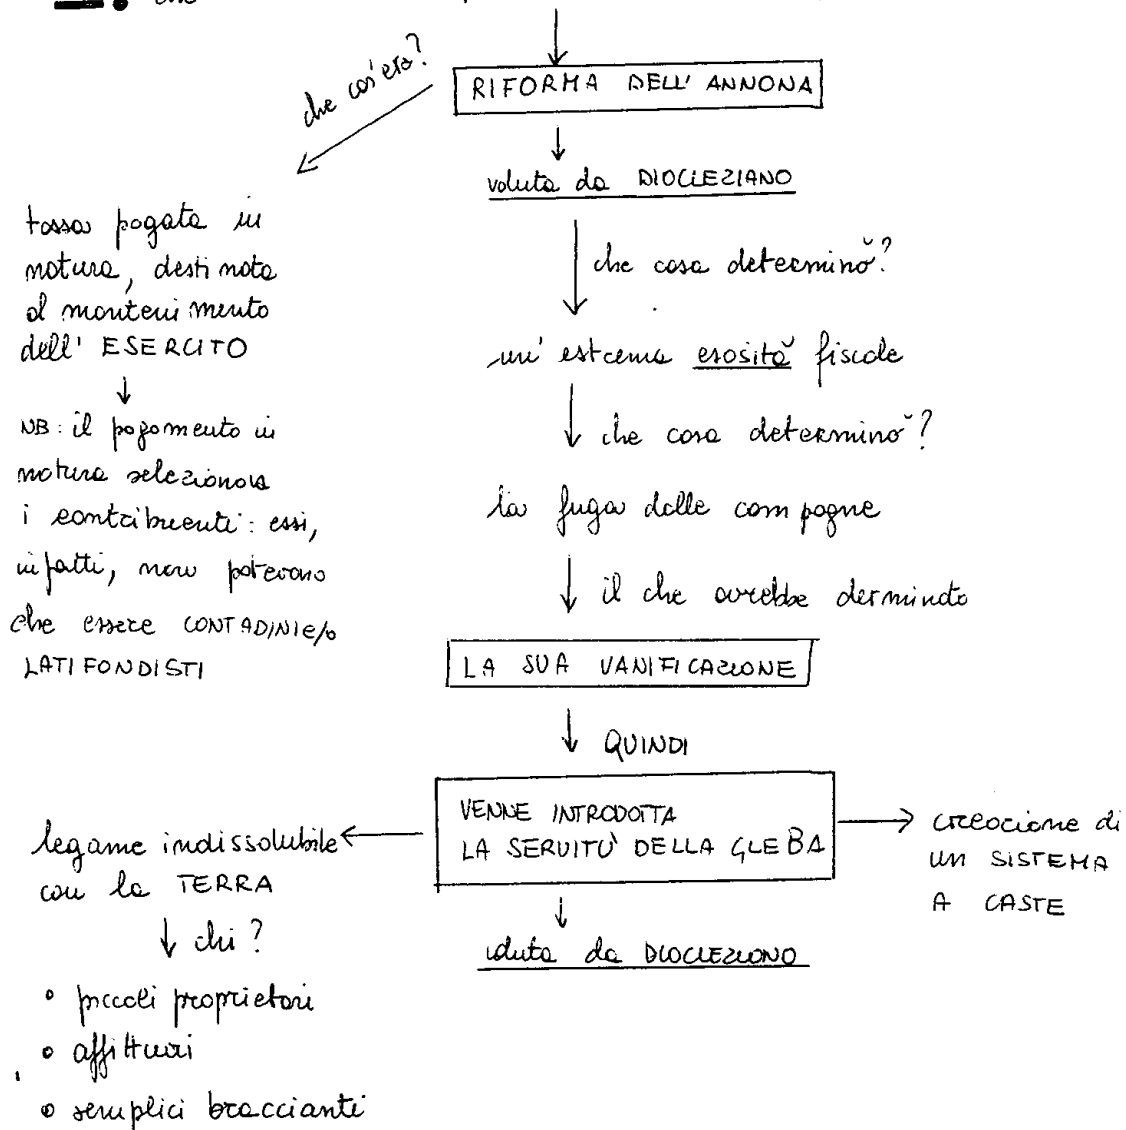 che cos'era?
RIFORMA DELL'ANNONA
voluta da DIOCLEZIANO
tassa pagata in
natura, destinata
al mantenimento
dell' ESERCITO
NB: il pagamento in
natura selezionava
i contribuenti: essi,
infatti, non potevano
che essere CONTADINI e/o
LATIFONDISTI
che cosa determinò?
un'estrema esosità fiscale
che cosa determinò?
la fuga dalle campagne
il che avrebbe derminato
LA SUA VANIFICAZIONE
QUINDI
VENNE INTRODOTTA
LA SERVITÙ DELLA GLEBA
legame indissolubile
con la TERRA
chi?
• piccoli proprietari
• affittuari
• semplici braccianti
voluta da DIOCLEZIANO
creazione di
un SISTEMA
A CASTE